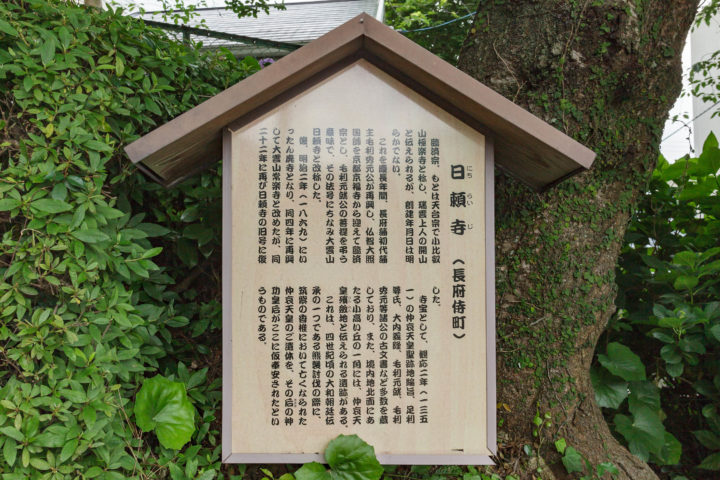 日頼寺（長府侍町）
にち らい じ
臨済宗、もとは天台宗で小比叡
山極楽寺と称し、瑞雲上人の開山
と伝えられるが、創建年月日は明
らかでない。
これを慶長年間、長府藩初代藩
主毛利秀元公が再興し、仏智大照
国師を京都京福寺から迎えて臨済
宗とし、毛利元就公の菩提を弔う
意味で、その法号にちなみ大雲山
日頼寺と改称した。
後、明治二年（一八六九）にい
ったん廃寺となり、同四年に再興
して大雲山常楽寺と改めたが、同
二十二年に再び日頼寺の旧号に復
した。
寺宝として、観応二年（一三五
一）の仲哀天皇聖跡地綸旨、足利
尊氏、大内義隆、毛利元就、毛利
秀元等諸公の古文書など多数を蔵
しており、また、境内地北面にあ
たる小高い丘の一角には、仲哀天
皇殯斂地と伝えられる遺跡がある。
これは、四世紀頃の大和朝廷伝
承の一つである熊襲討伐の際に、
筑紫の香椎において亡くなられた
仲哀天皇のご遺体を、その后の神
功皇后がここに仮奉安されたとい
うものである。